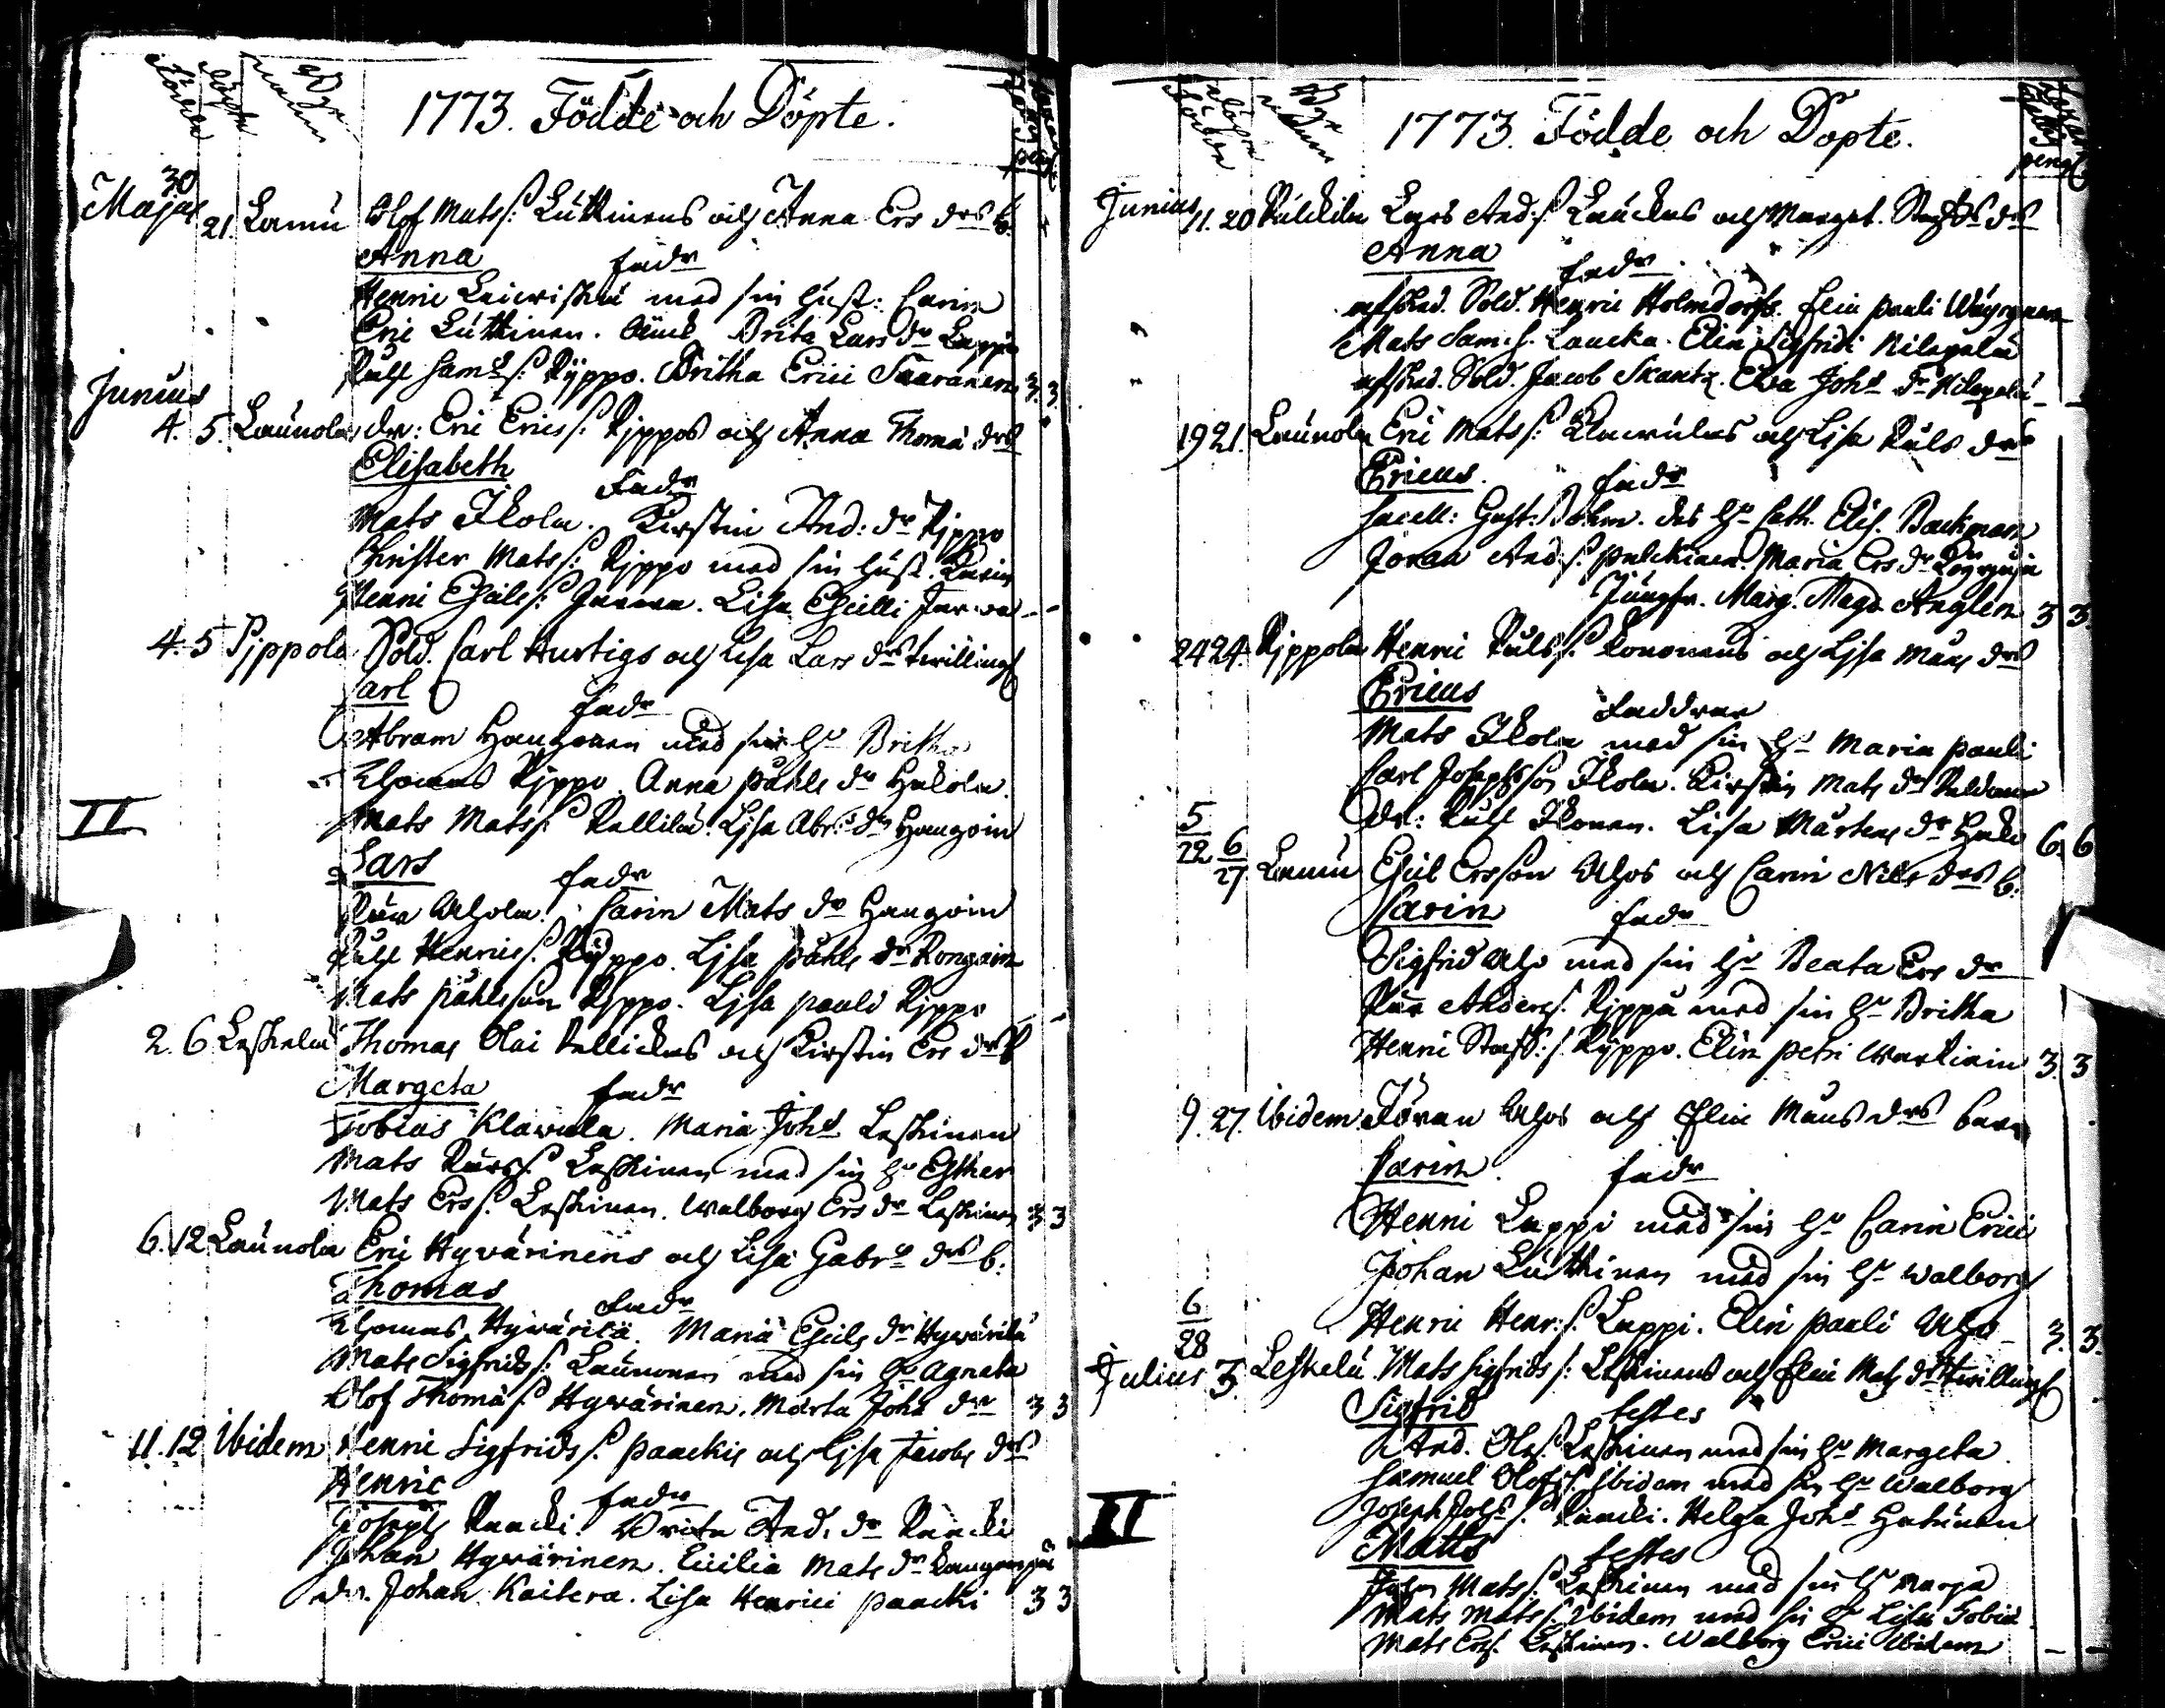 Födde
Döpte
Byar
1773. Födde och Döpte.
30
Majus 21. Lamu Olof Mats s: Luttinens och Anna Ers drs b.
Anna fadr
Henric med sin hust: Carin
Eric Luttinen. Brita Lars dr Lappi
Påhl Sam s: Kyppo. Britha Erici Saaranen 3. 3.
Junius
4. 5. Launola dr: Eric Erics s: Pippos och Anna Thomæ drs
Elisabeth Fadr
Mats Ikola. Kirstin And: dr Pippo
Christer Mats s: Pippo med sin hust. Karin
Henric Eskils s: Lisa Eskilli
4. 5 Pippola Sold. Carl Hurtigs och Lisa Lars drs twilling
Carl fadr
Abram Haugonen med sin hu Britha
Thomas Pippo. Anna Påhls dr Hakola.
II Mats Mats s: Kellilä. Lisa Abr: dr Haugoin
Lars fadr
Aholm. Carin Mats dr Haugoin
Påhl Henrics s. Kyppo. Lisa Påhls dr
Mats Påhlsson Pippo. Lisa Pauli Pippo
2. 6 Leskelä Thomas Olai Kellickas och Kirstin Ers drs b
Margeta fadr
Tobias Klawula. Maria Johs Leskinen
Mats Lars s. Leskinen med sin hu Esther
Mats Ers s. Leskinen. Walborg Ers dr Leskinen 3 3
6. 12 Launola Eric Hyvärinens och Lisa Gabr drs b:
Thomas Fadr
Thomas Hyvärilä. Maria Eskils dr Hyvärilä
Mats Sigfrids s: Launonen med sin hu Agneta
Olof Thomæ s. Hyvärinen. Marta Joha dr 3 3
11. 12 Ibidem Henric Sigfrids s. Paackis och Lisa Jacobs drs
Henric fadr
Joseph Raacki. Brita And. dr Raacki
Johan Hyvärinen. Cicilia Mats dr
dr. Johan Kaitera. Lisa Henrici Paacki 3 3
Födde
Döpte
Byar
1773. Födde och Döpte.
Junius 11. 20 Pulckila Lars And s. Lauckas och Marget. Staff drs
Anna fadr
afsked. Sold. Henric Holmdorff. Elin Pauli Wäyrynen
Mats Sam. s. Laucka. Elin Sigfridi
afsked. Sold. Jacob Skantz. Ewa Johs dr
19 21. Launola Eric Mats s: Klawulas och Lisa Påls drs
Ericus. fadr
Sacell: Gust: Bohm. des hu Cath. Elis. Backman
Jöran And s. Pulckinen. Maria Ers dr
Jungfr. Marg. Magd. Anglen 3 3.
24 24. Pippola Henric Påls s. Kononens och Lisa Måns drs
Ericus Faddrar
Mats Ikola med sin hu Maria Pauli
Carl Josephsson Ikola. Kirstin Mats dr
dr: Påhl Ikonen. Lisa Mårtens dr 6. 6
5
22 6
27. Lamu Eskil Ersson Ahos och Carin Nils drs b:
Carin fadr
Sigfrid Aho med sin hu Beata Ers dr
Anders s. Pippo med sin hu Britha
Henric Staff: s. Kyppo. Elin Petri 3. 3
9. 27. Ibidem Jöran Ahos och Elin Måns drs barn
Carin. fadr
Henric Lappi med sin hu Carin Erici
Johan Luttinen med sin hu Walborg
6
28
Henric Henr: s. Lappi. Elin Pauli Aho 3. 3.
Julius 3. Leskelä Mats Sigfrids s: Leskinens och Elin Mats drs twilling
Sigfrid testes
And. Ols s. Leskinen med sin hu Margeta
Samuel Olofs s. Ibidem med sin hu Walborg
Joseph Johs s. Raacki. Helga Johs
II Matts testes
Mats s. Leskinen med sin hu Marja
Mats Mats s. Ibidem med sin hu Lisa Tobiæ
Mats Ers s. Leskinen. Walborg Erici Ibidem